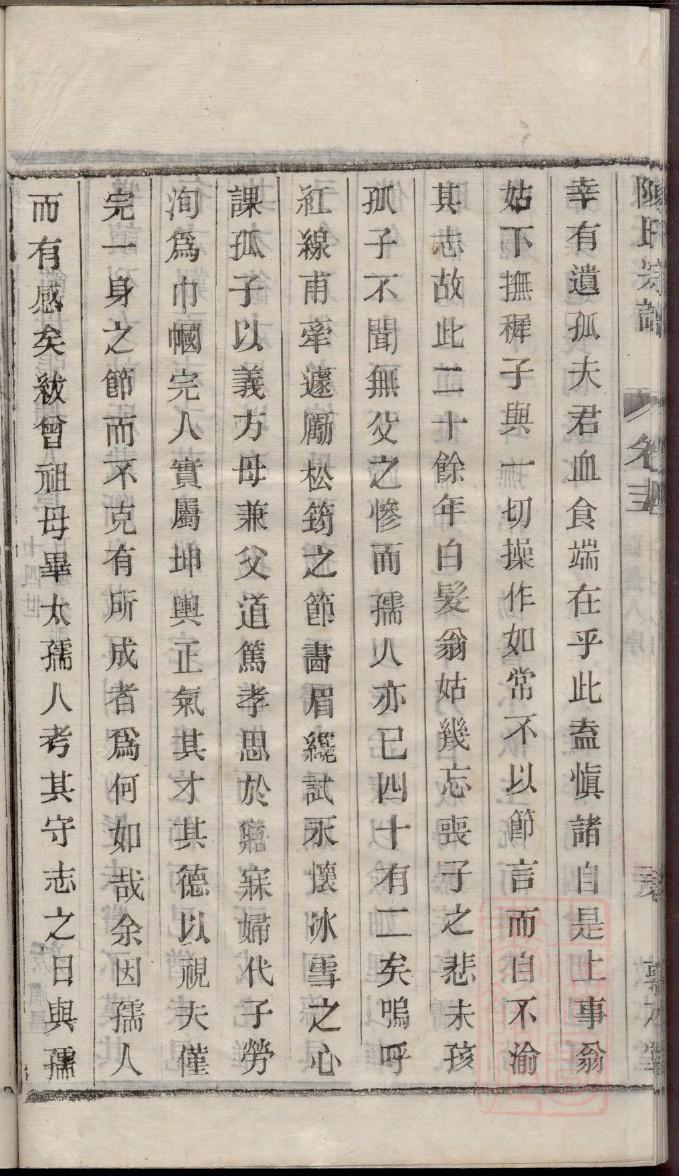 陳氏宗譜
卷三
幸有遺孤夫君血食端在乎此盍慎諸自是上事翁
姑下撫穉子與一切操作如常不以節言而自不渝
其志故此二十餘年白髮翁姑幾忘喪子之悲未孩
孤子不聞無父之慘而孺人亦已四十有二矣嗚呼
紅線甫牽遽勵松筠之節畵眉纔試永懷冰雪之心
課孤子以義方母兼父道篤孝思於寤寐婦代子勞
洵爲巾幗完人實屬坤輿正氣其才其德以視夫僅
完一身之節而不克有所成者爲何如哉余因孺人
而有感矣紱曾祖母畢太孺人考其守志之日與孺